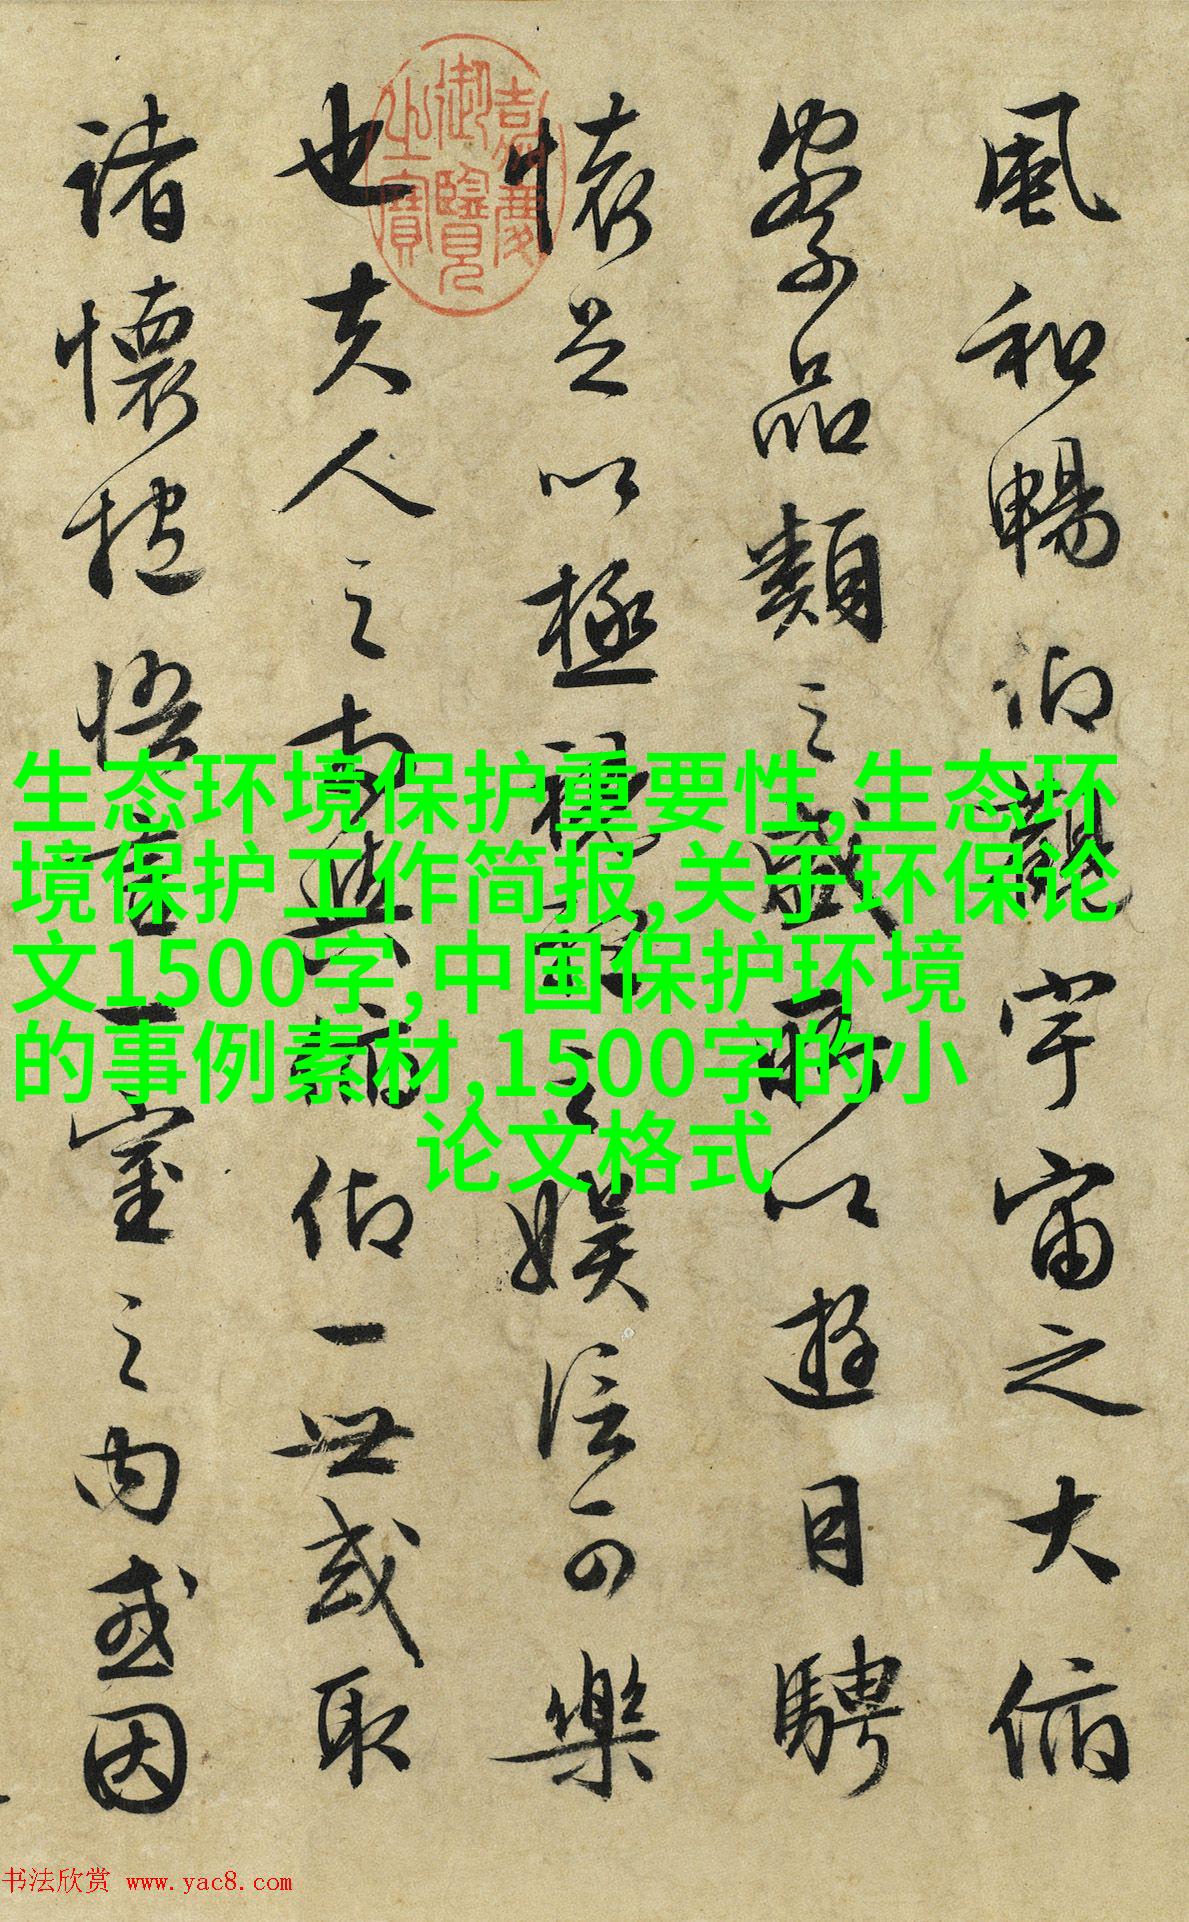 風和暢仰觀宇宙之大俯
察品類之盛所以遊目騁
懷足以極視聽之娱信可樂
也夫人之相與俯仰一世或取
諸懷抱悟言一室之内或因
嘉慶
御覽
之寶
生态环境保护重要性,生态环
境保护工作简报,关于环保论
文1500字,中国保护环境
的事例素材,1500字的小
论文格式
书法欣赏 www.yac8.com